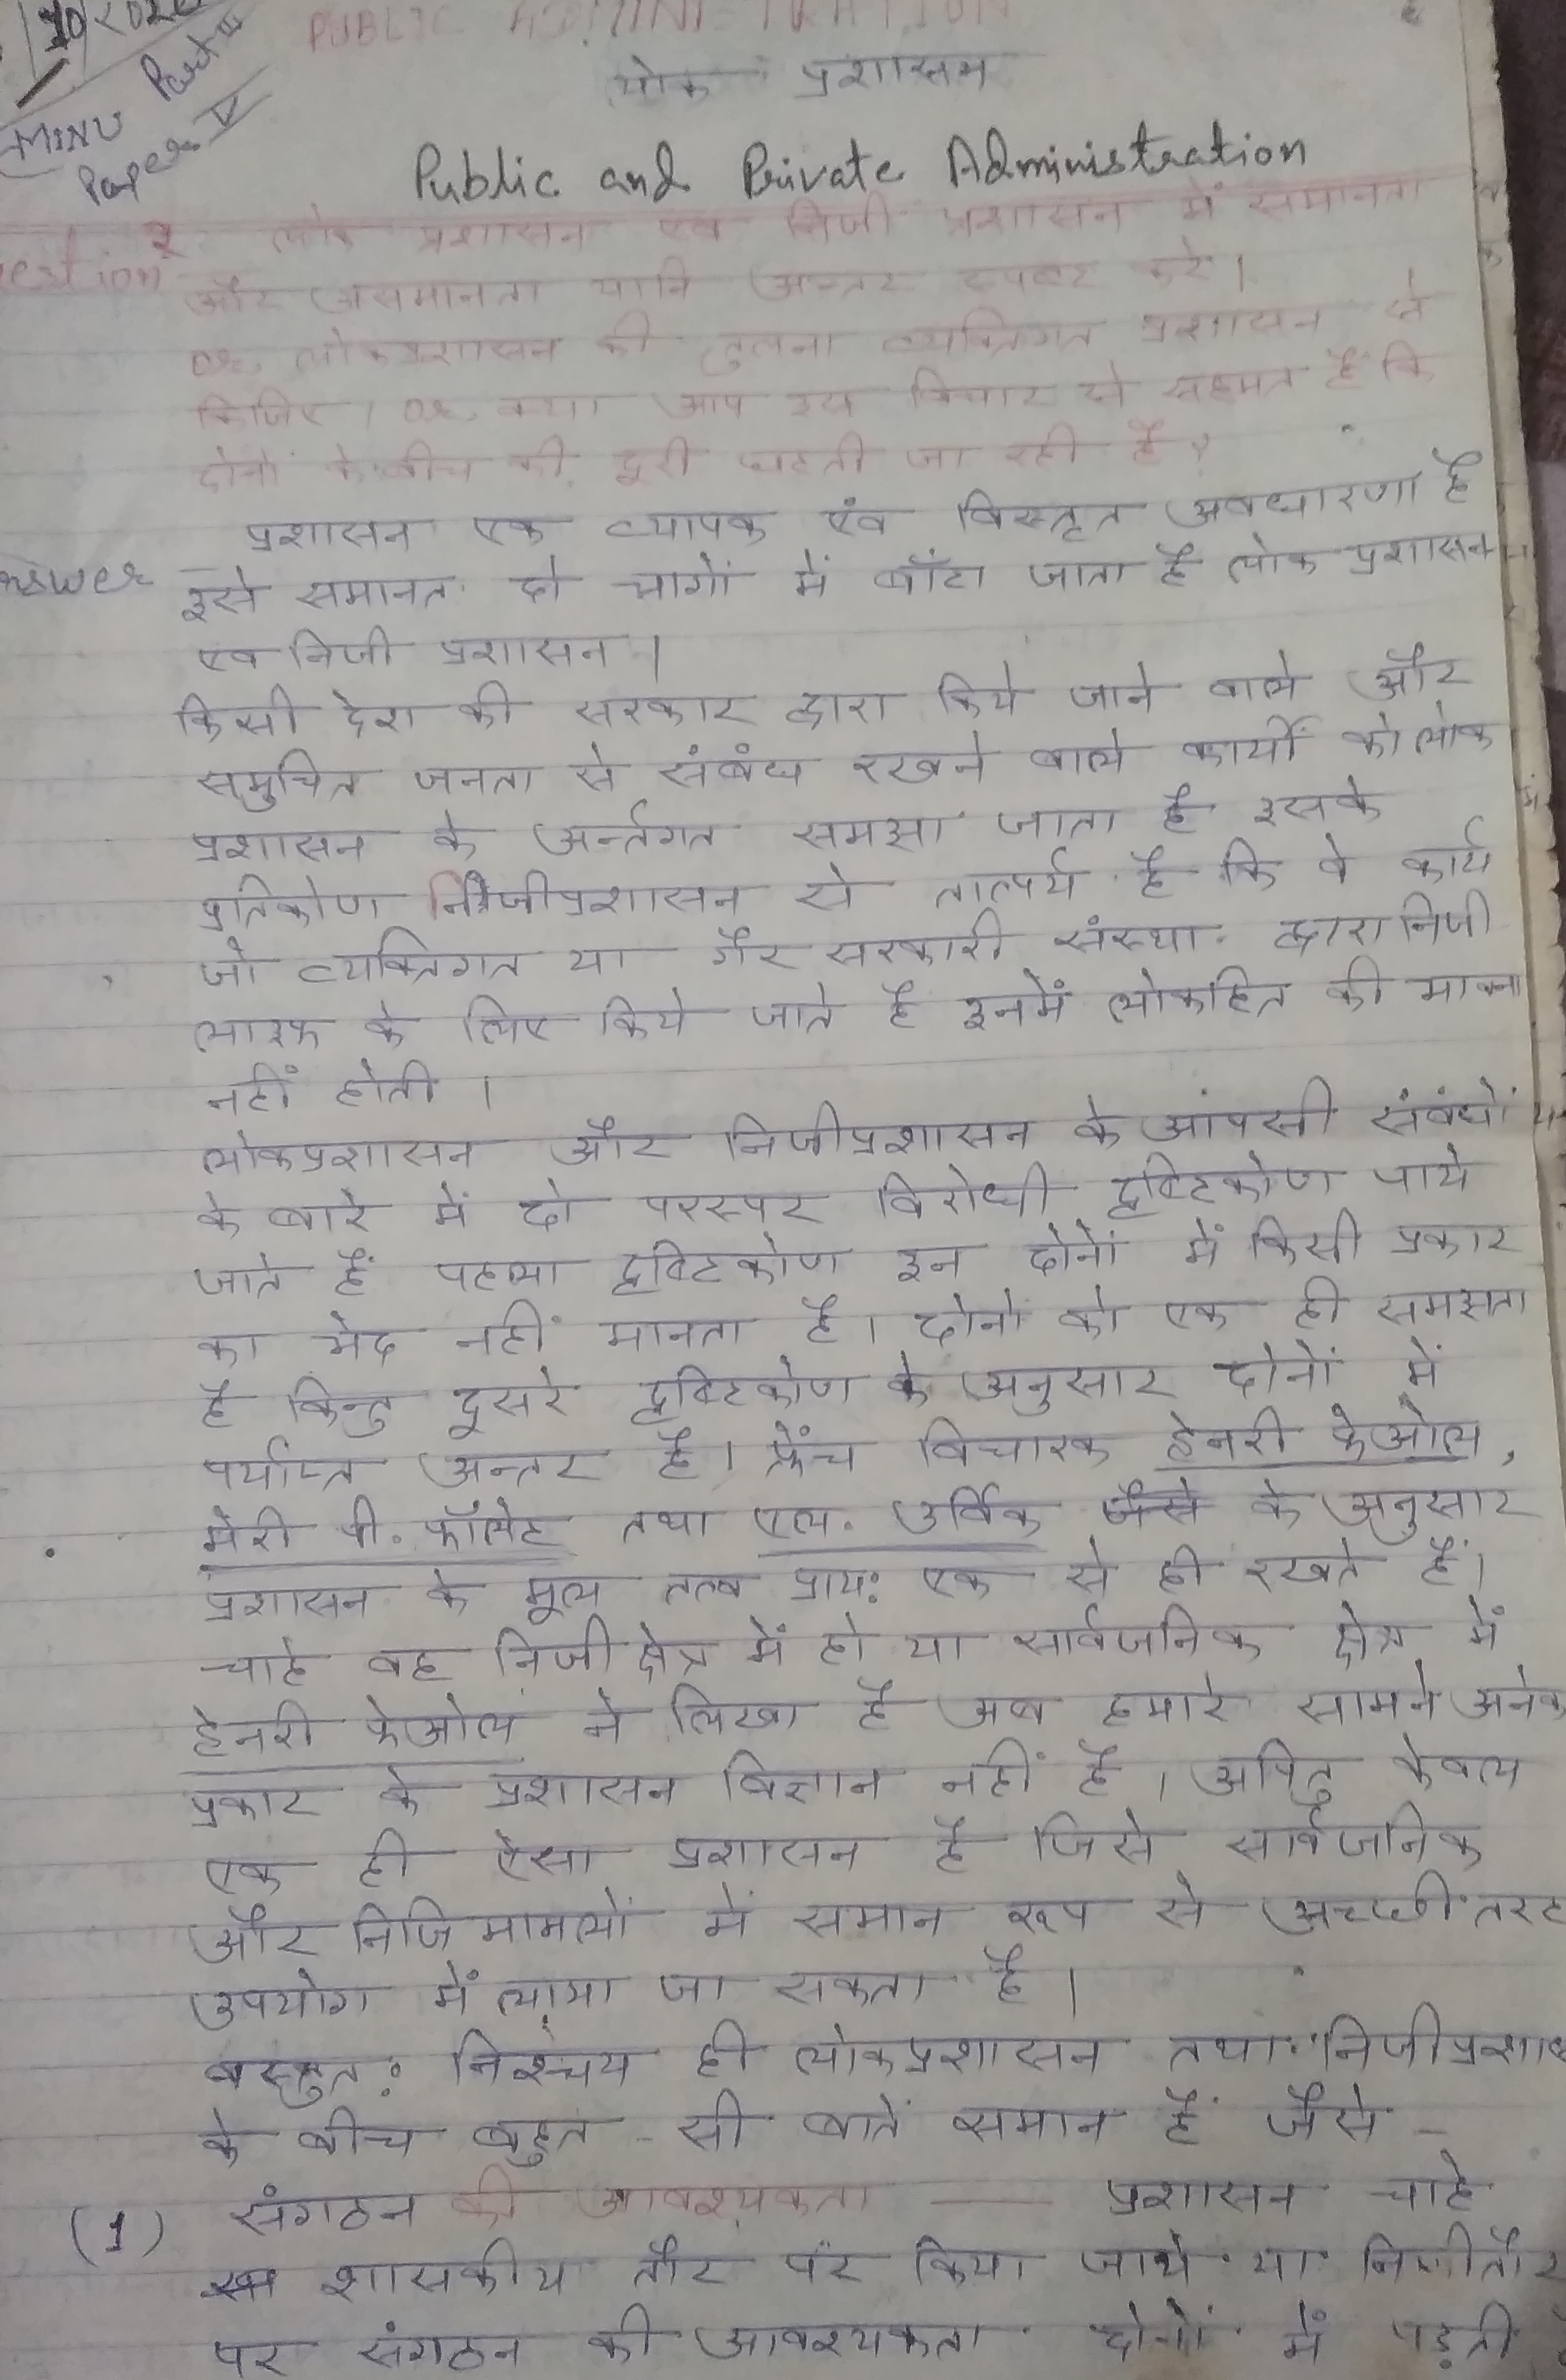 10/202
MINU Part III
Paper IV
PUBLIC ADMINISTRATION
लोक प्रशासन
Public and Private Administration
estion 2 लोक प्रशासन एव निजी प्रशासन में समानता
और असमानता यानि अन्तर स्पष्ट करे।
or, लोकप्रशासन की तुलना व्यक्तिगत प्रशासन से
किजिए। or, क्या आप इस विचार से सहमत है कि
दोनों के बीच की दूरी घटती जा रही है?
प्रशासन एक व्यापक एंव विस्तृत अवधारणा है
nswer इसे समानत दो भागों में बाँटा जाता है लोक प्रशासन
एव निजी प्रशासन।
किसी देश की सरकार द्वारा किये जाने वाले और
समुचित जनता से संबंध रखने वाले कार्यों को लोक
प्रशासन के अर्न्तगत समझा जाता है इसके
प्रतिकोण निजीप्रशासन से तात्पर्य है कि वे कार्य
जो व्यक्तिगत या गैर सरकारी संस्था द्वारा निजी
के लिए किये जाते है इनमें लोकहित की भावना
नहीं होती।
लोकप्रशासन और निजीप्रशासन के आपसी संबंधों
के बारे में दो परस्पर विरोधी द्वष्टिकोण पाये
जाते हैं पहला द्वष्टिकोण इन दोनों में किसी प्रकार
का भेद नहीं मानता है। दोनों को एक ही समझता
है किन्तु दूसरे द्वष्टिकोण के अनुसार दोनों में
पर्याप्त अन्तर है। फ्रेंच विचारक हेनरी फेओल,
मेरी पी. फॉलेट तथा एल. उर्विक जैसे के अनुसार
प्रशासन के मूल तत्व प्राय: एक से ही रखते हैं।
चाहे वह निजी क्षेत्र में हो या सार्वजनिक क्षेत्र में
हेनरी फेओल ने लिखा है अब हमारे सामने अनेक
प्रकार के प्रशासन विज्ञान नहीं है। अपितु केवल
एक ही ऐसा प्रशासन है जिसे सार्वजनिक
और निजि मामलों में समान रूप से अच्छी तरह
उपयोग में लाया जा सकता है।
वस्तुत: निश्चय ही लोकप्रशासन तथा निजीप्रशास
के बीच बहुत - सी बातें समान हैं जैसे -
(1) संगठन की आवश्यकता — प्रशासन चाहे
शासकीय तौर पर किया जाये या निजी तौर
पर संगठन की आवश्यकता दोनों में पड़ती